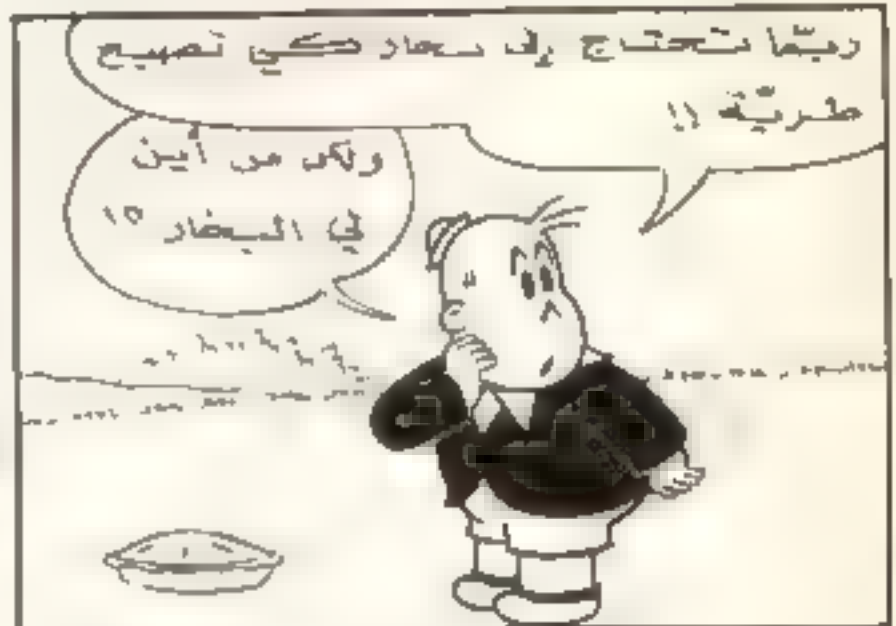 ربّما تحتاج إلى بخار كي تصبح
طريّة !!
ولكن من أين
لي البخار ؟!